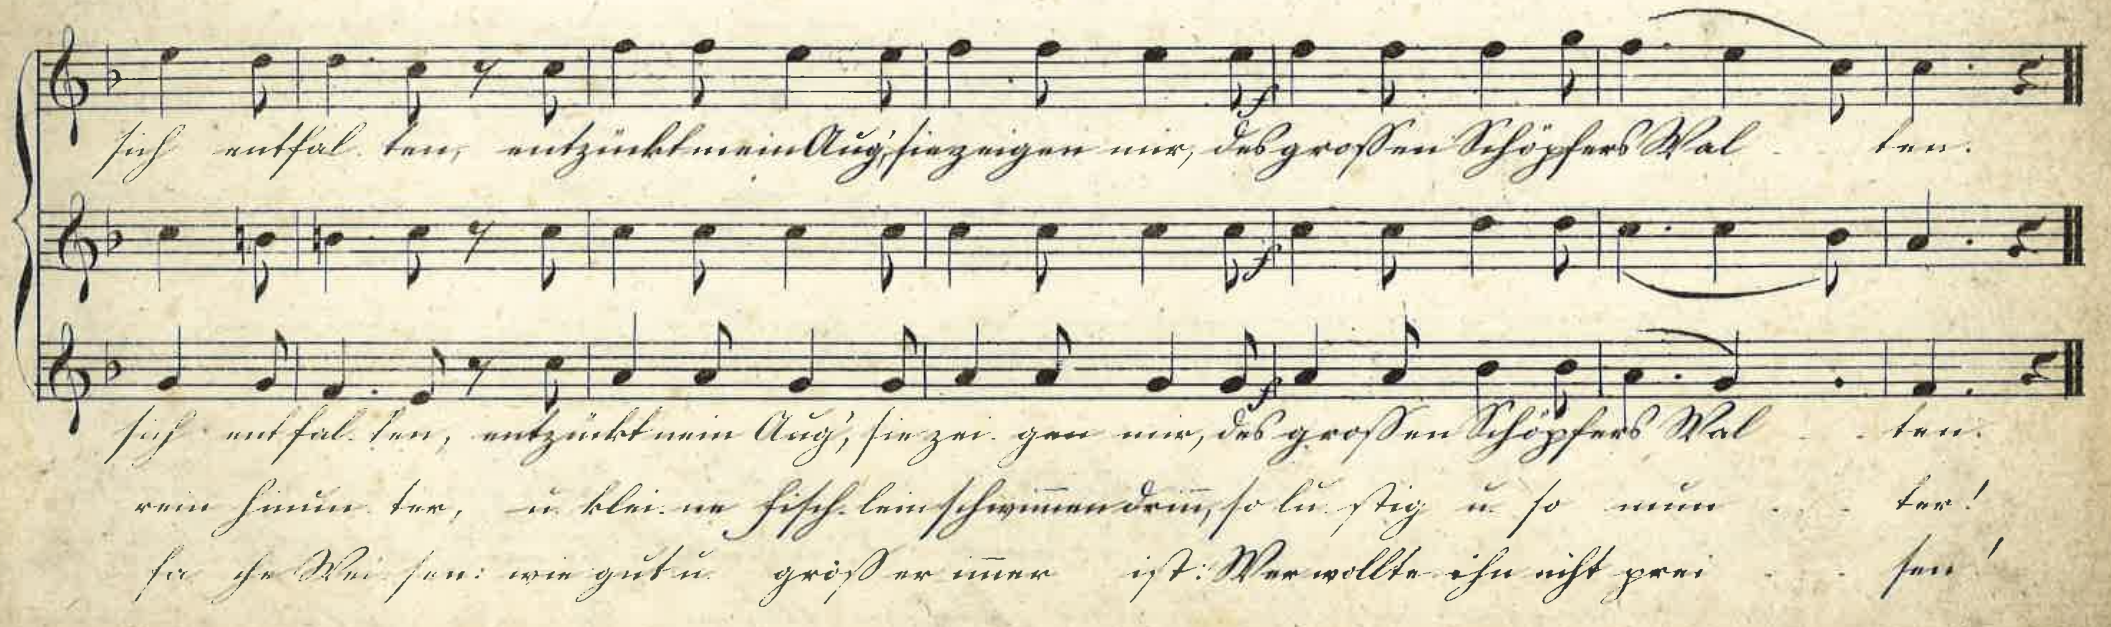 sich entfal. ten, entzückt mein Aug', sie zeigen mir, des großen Schöpfers Wal - - ten.
sich entfal. ten, entzückt mein Aug', sie zei. gen mir, des großen Schöpfers Wal - - ten.
rein hinun. ter, u. klei. ne Fisch. lein schwim̄en drin̄, so lu. stig u. so mun - - ter!
fa che Wei sen: wie gut u. größ er im̄er ist: Wer wollte ihn nicht prei - - sen!